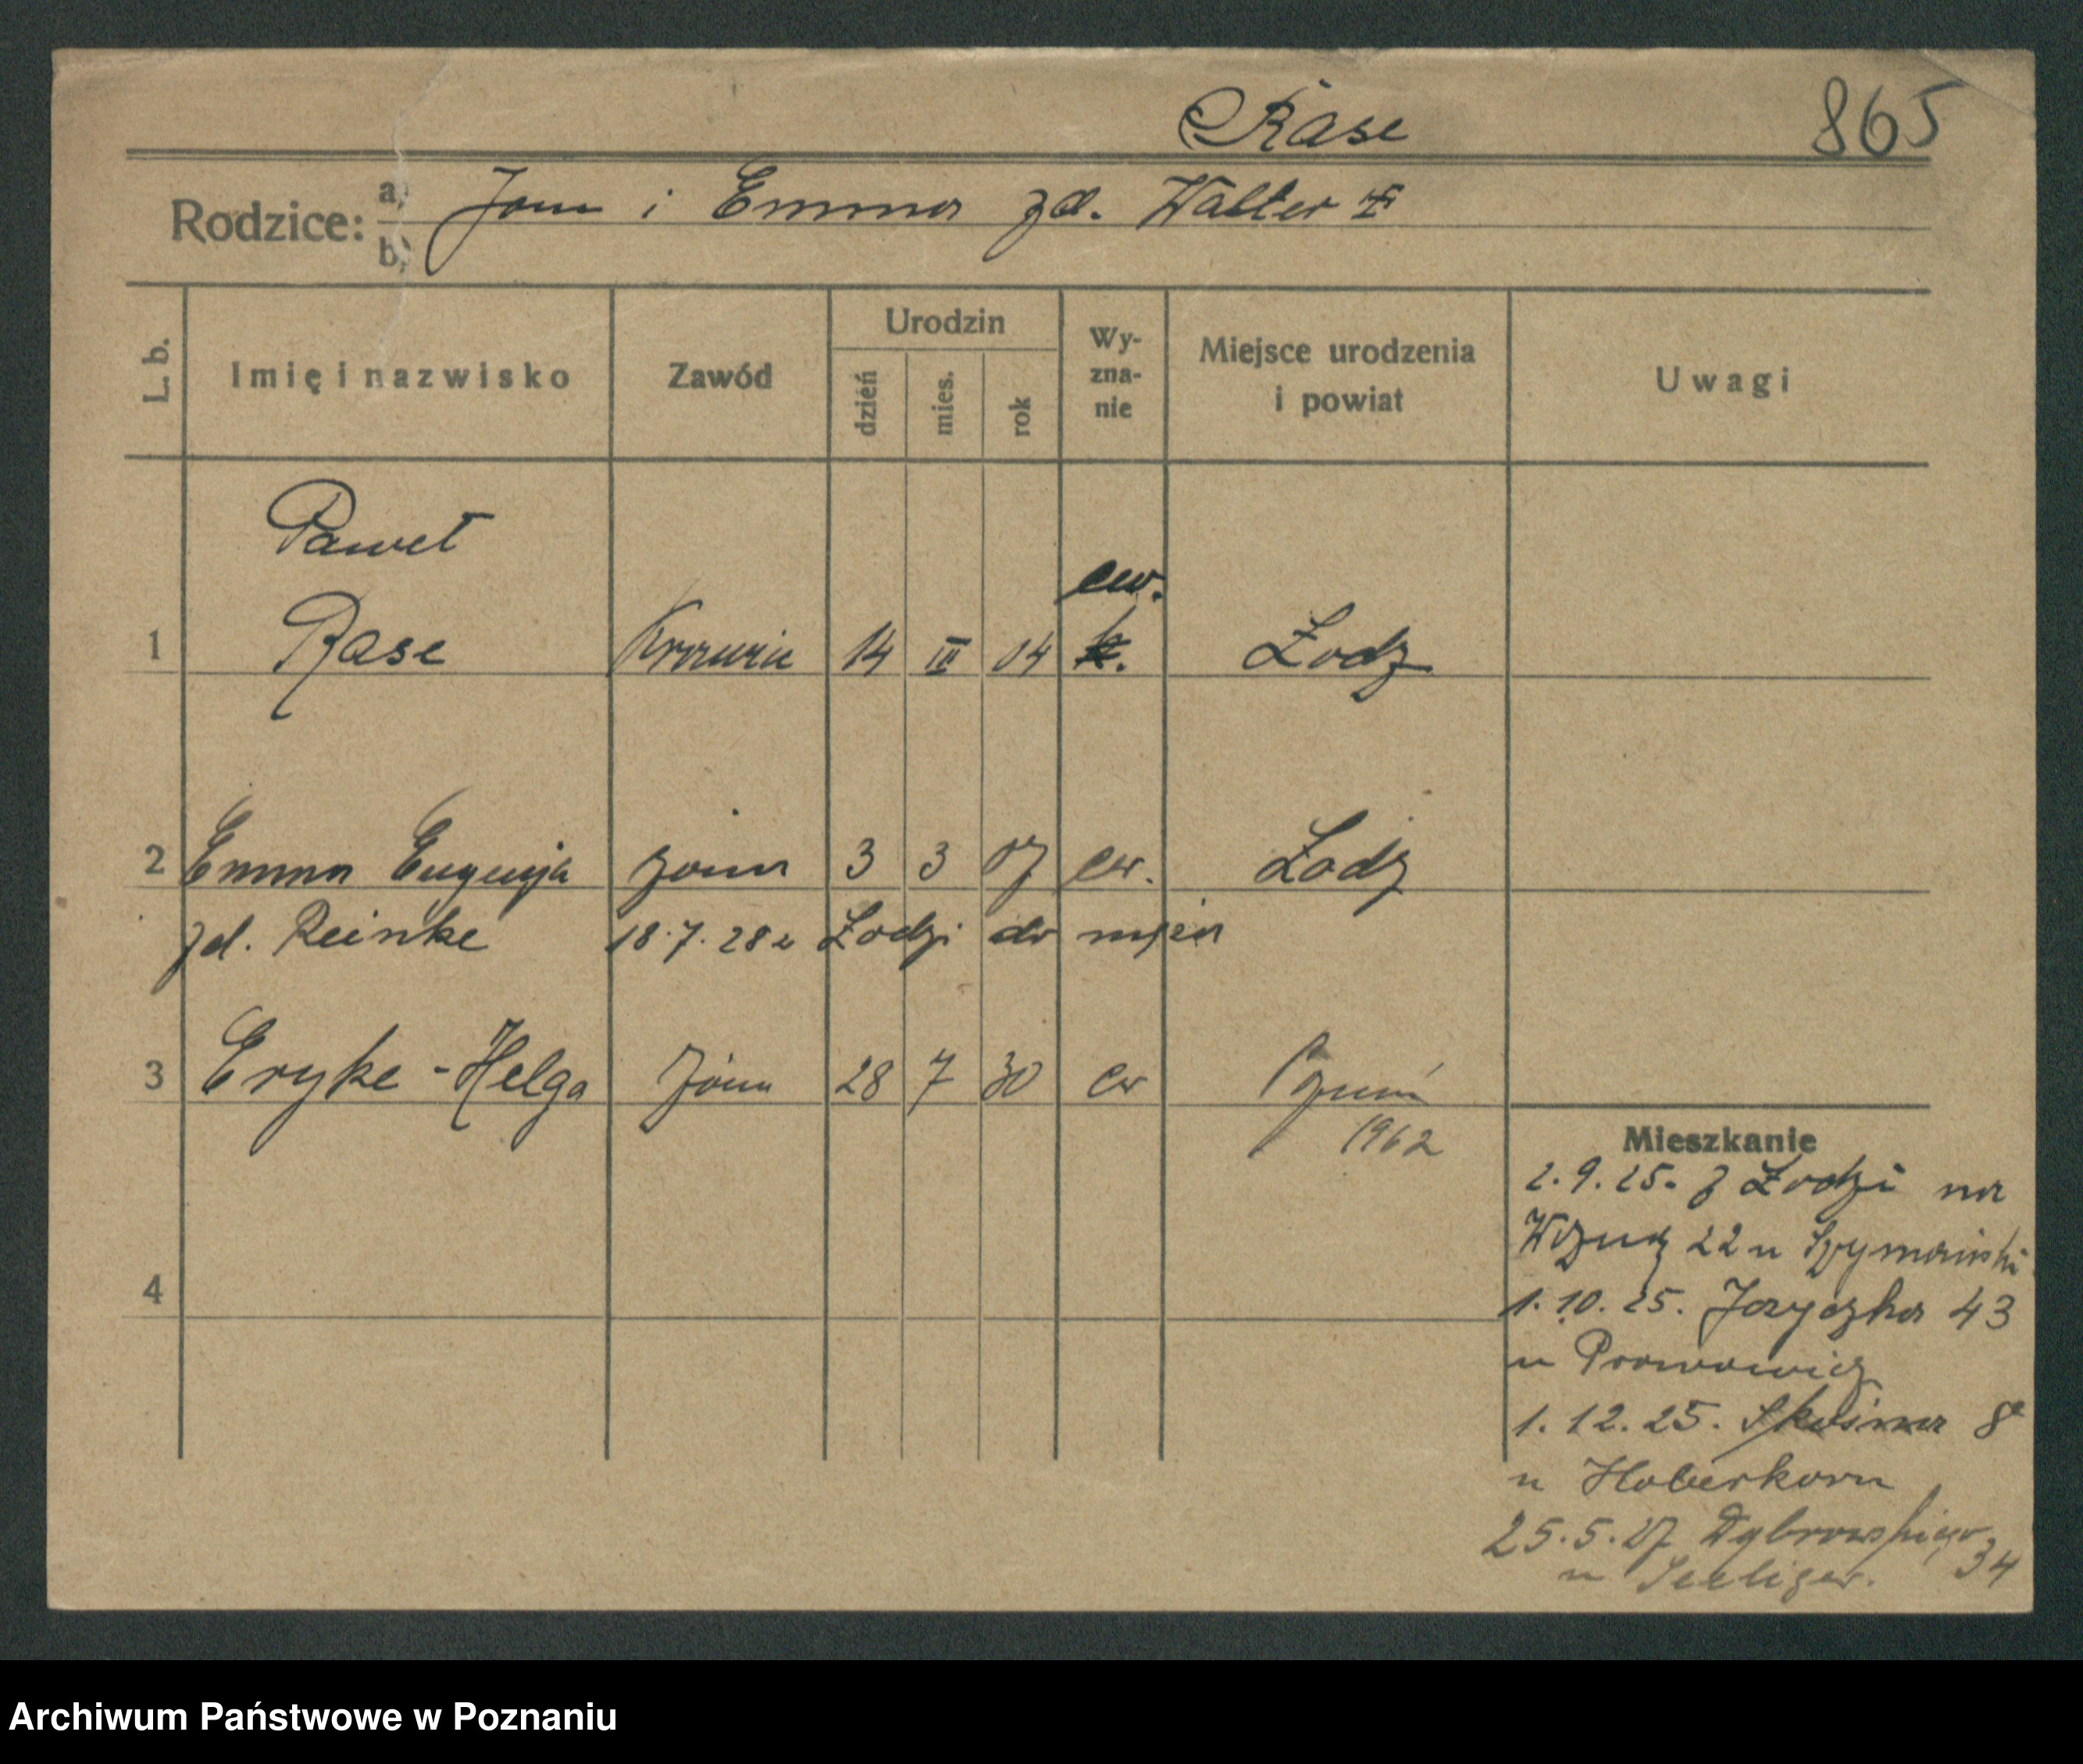 Rase
865
Rodzice: a) Jan i Emma zd. Walter
b)
L. b.
Imię i nazwisko
Zawód
Urodzin
dzień
mies.
rok
Wy-
zna-
nie
Miejsce urodzenia
i powiat
Uwagi
Paweł
ew.
1 Rase 14 III 04 k. Łodz
2 Emma Eugenja żona 3 3 07 ew. Łodz
zd. Reinke 18.7.28 z Łodzi do męża
3 Eryke-Helga 28 7 30 ew Poznań
1962
Mieszkanie
2.9.25. z Łodzi na
22 u Szymański
1.10.25. 43
u
1.12.25. Skośna 8a
u Haberkorn
25.5.27 Dąbrowskiego
34
u Seeliger.
4
Archiwum Państwowe w Poznaniu